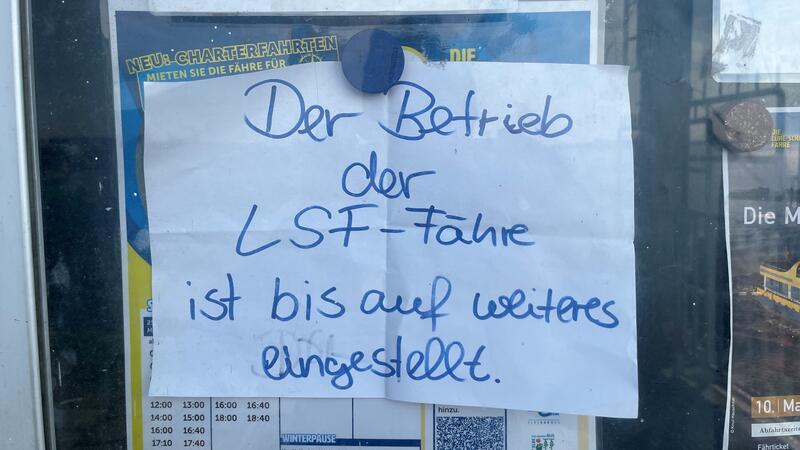 NEU: CHARTERFAHRTEN
MIETEN SIE DIE FÄHRE FÜR
DIE
Der Betrieb
der
LSF-Fähre
ist bis auf weiteres
eingestellt.
12:00 13:00 16:00 16:40
14:00 15:00 18:00 18:40
16:00 16:40
17:10 17:40
WINTERPAUSE
hinzu.
DIE
FÄHRE
Die M
10. Ma
Abfahrtszeit
Fährticket